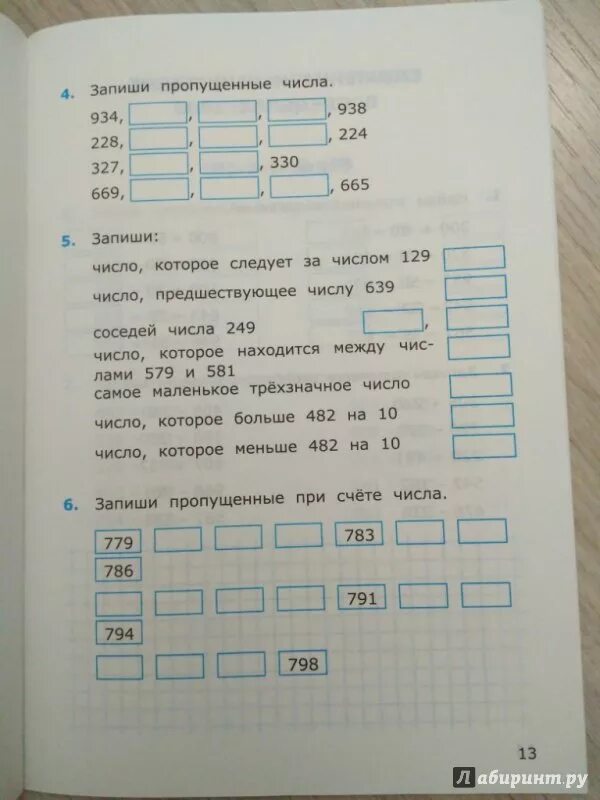 4. Запиши пропущенные числа.
934, , , , 938
228, , , , 224
327, , , 330
669, , , , 665
5. Запиши:
число, которое следует за числом 129
число, предшествующее числу 639
соседей числа 249 ,
число, которое находится между чис-
лами 579 и 581
самое маленькое трёхзначное число
число, которое больше 482 на 10
число, которое меньше 482 на 10
6. Запиши пропущенные при счёте числа.
779 783
786
791
794
798
13
Лабиринт.ру